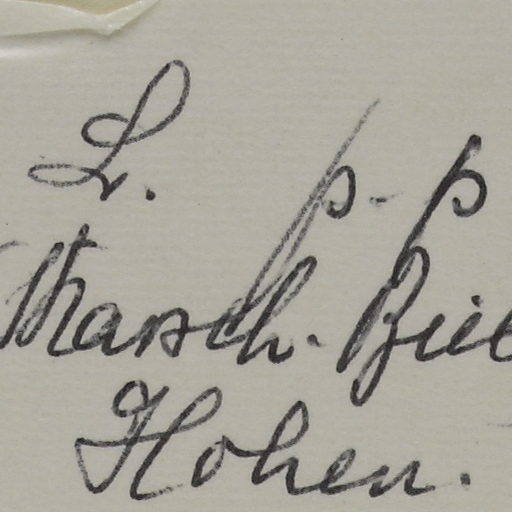 L. p-p
Marsch. Biel
Hohen.